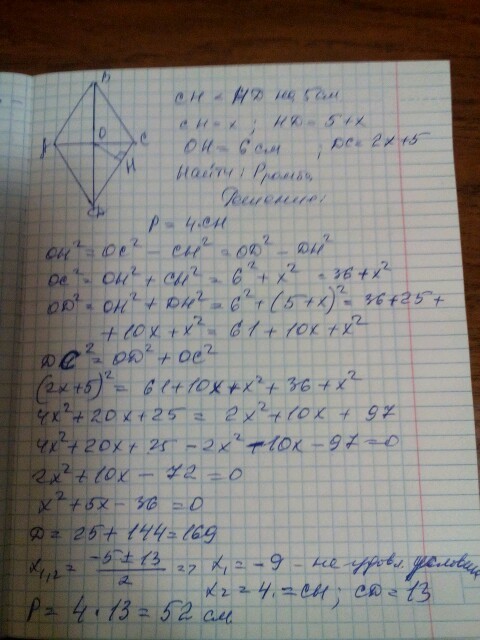 B
A
O
C
H
D
CH < HD на 5 см
CH = x ; HD = 5+x
OH = 6 см ; DC = 2x+5
Найти: Pромба
Решение:
P = 4·CH
OH² = OC² - CH² = OD² - DH²
OC² = OH² + CH² = 6² + x² = 36 + x²
OD² = OH² + DH² = 6² + (5+x)² = 36+25+
+10x + x² = 61 + 10x + x²
DC² = OD² + OC²
(2x+5)² = 61+10x+x²+36+x²
4x²+20x+25 = 2x²+10x+97
4x²+20x+25-2x²-10x-97=0
2x²+10x-72=0
x²+5x-36=0
D = 25+144=169
x₁,₂ = (-5±13)/2 => x₁ = -9 - не удовл. условию
x₂ = 4 = CH ; CD = 13
P = 4·13 = 52 см